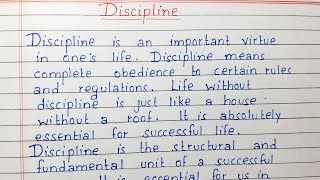 Discipline
Discipline is an important virtue
in one's life. Discipline means
complete obedience to certain rules
and regulations. Life without
discipline is just like a house
without a roof. It is absolutely
essential for successful life.
Discipline is the structural and
fundamental unit of a successful
It is essential for us in